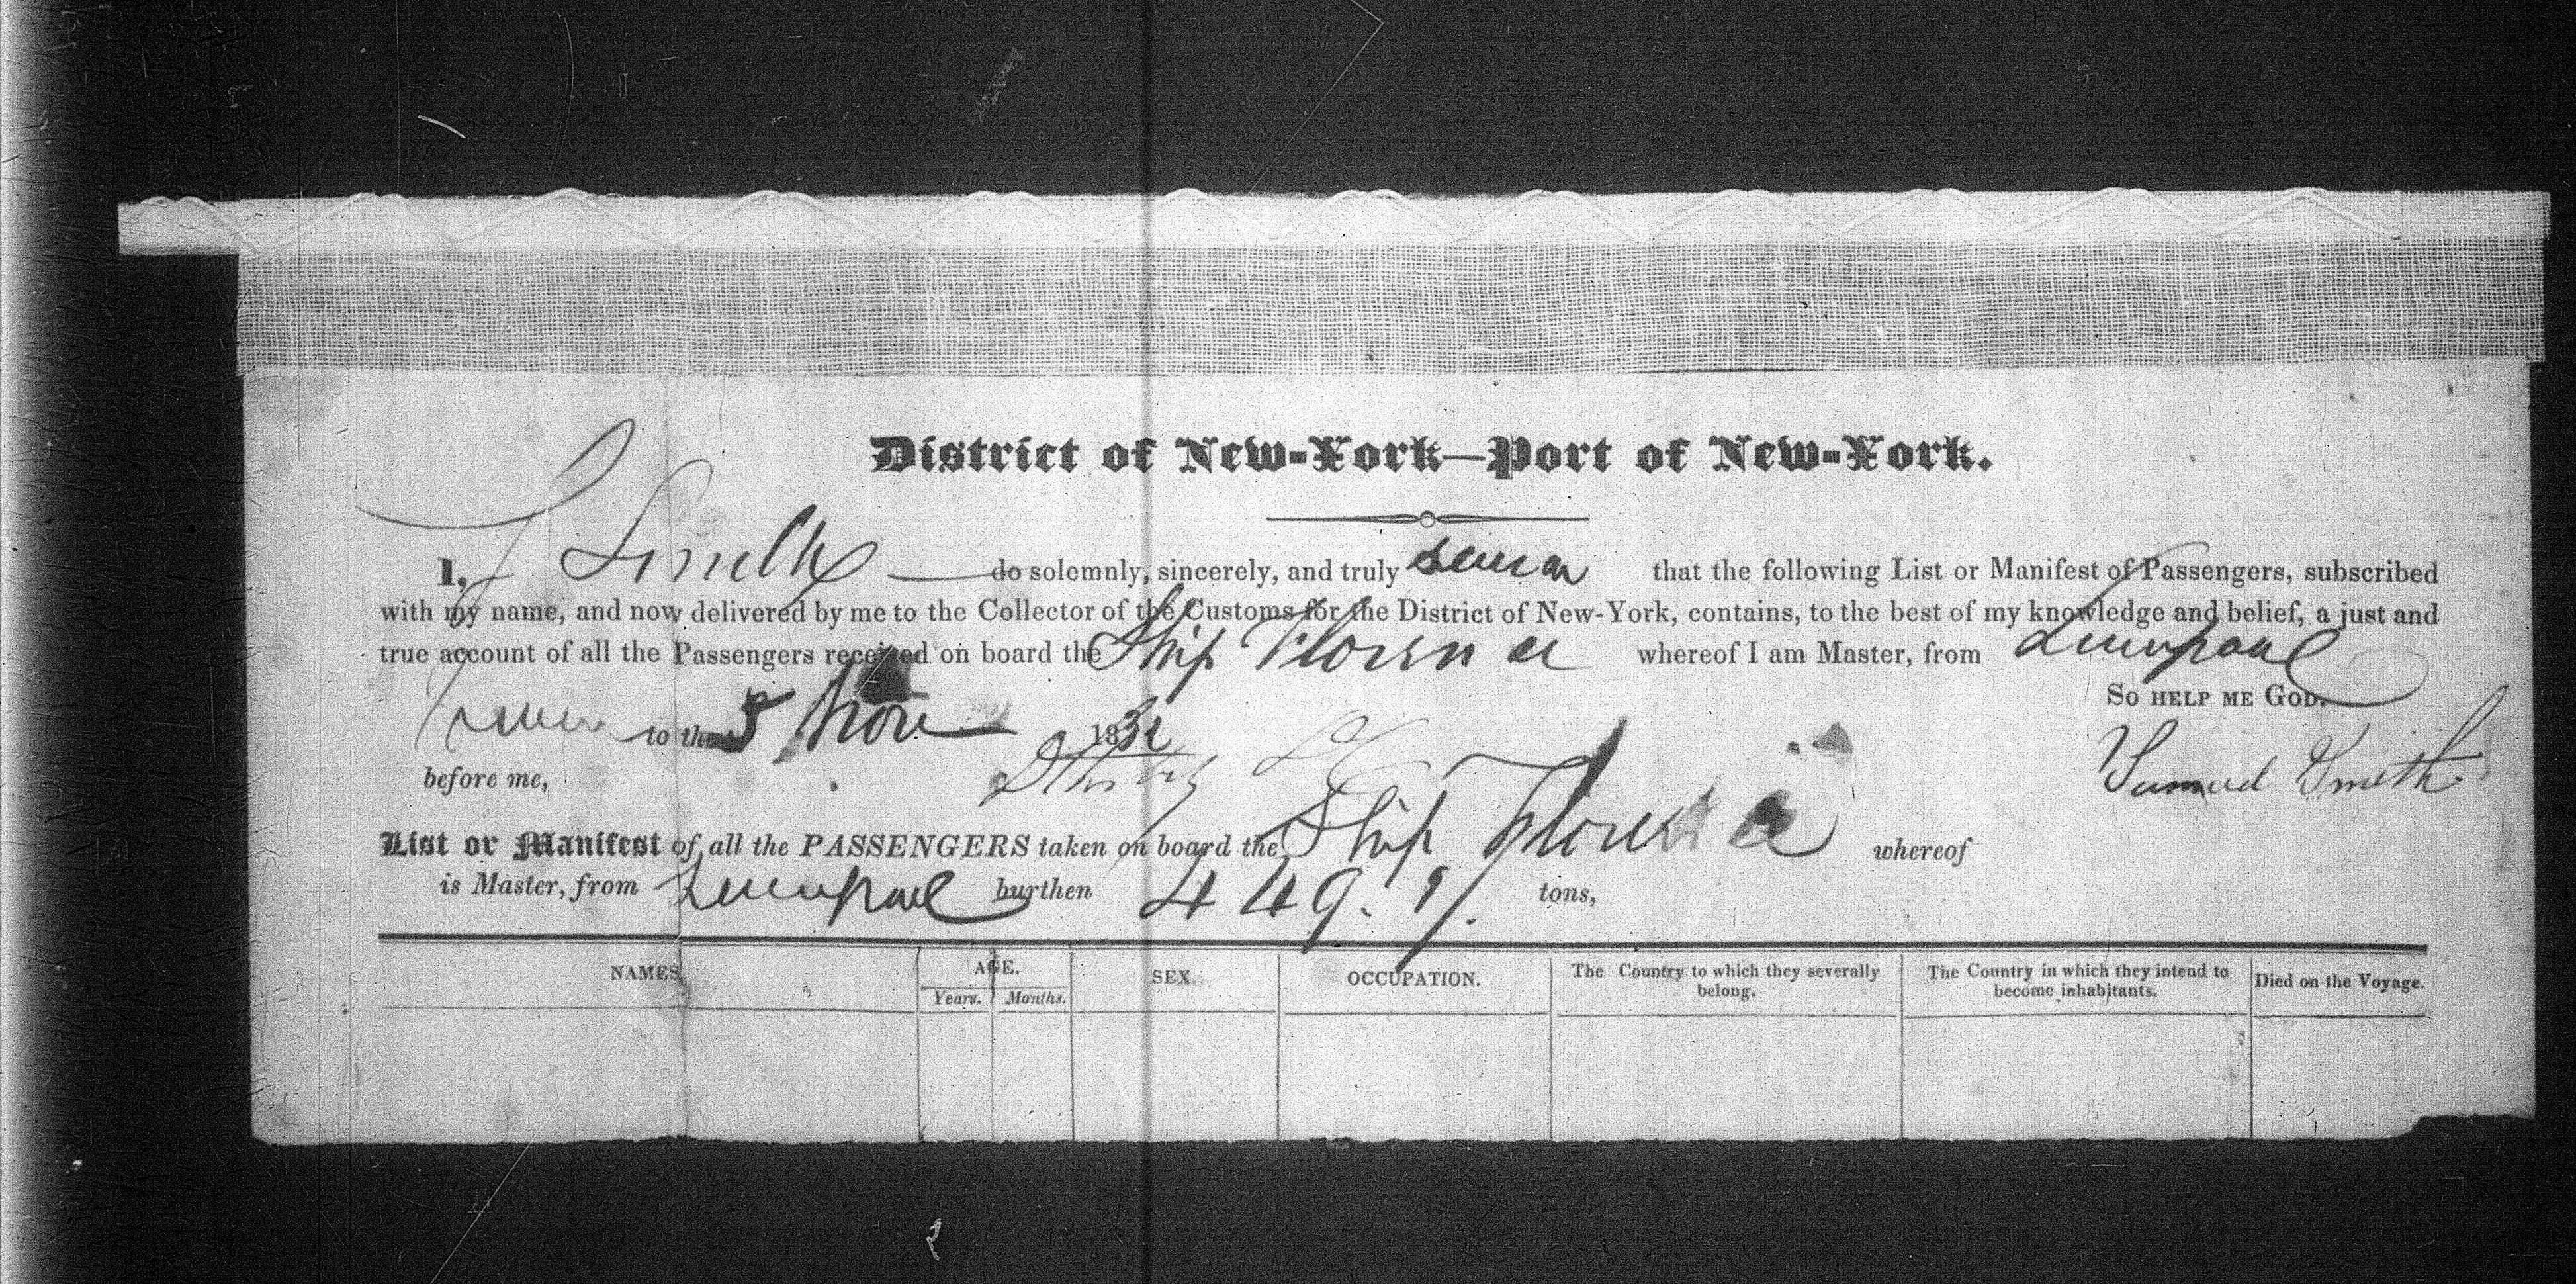 District of New-York—Port of New-York.
I, S Smith do solemnly, sincerely, and truly swear that the following List or Manifest of Passengers, subscribed
with my name, and now delivered by me to the Collector of the Customs for the District of New-York, contains, to the best of my knowledge and belief, a just and
true account of all the Passengers received on board the Ship Florence whereof I am Master, from Liverpool
So HELP ME GOD.
Sworn to the 5 Nov 1832
Samuel Smith
before me,
List or Manifest of all the PASSENGERS taken on board the Ship Florence whereof
is Master, from Liverpool burthen 449. tons,
NAMES AGE. SEX. OCCUPATION. The Country to which they severally belong. The Country in which they intend to become inhabitants. Died on the Voyage.
Years. Months.